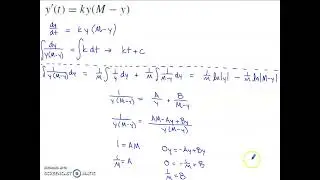 y'(t) = ky(M − y)
dy/dt = k y (M-y)
∫ dy/y(M-y) = ∫ k dt → kt + c
∫ 1/y(M-y) dy = 1/M ∫ 1/y dy + 1/M ∫ 1/M-y = 1/M ln|y| − 1/M ln|M-y|
1/y(M-y) = A/y + B/M-y
1/y(M-y) = AM-Ay+By/y(M-y)
1 = AM 0y = -Ay+By
1/M = A 0 = -1/M + B
1/M = B
RECORDED WITH
SCREENCAST MATIC